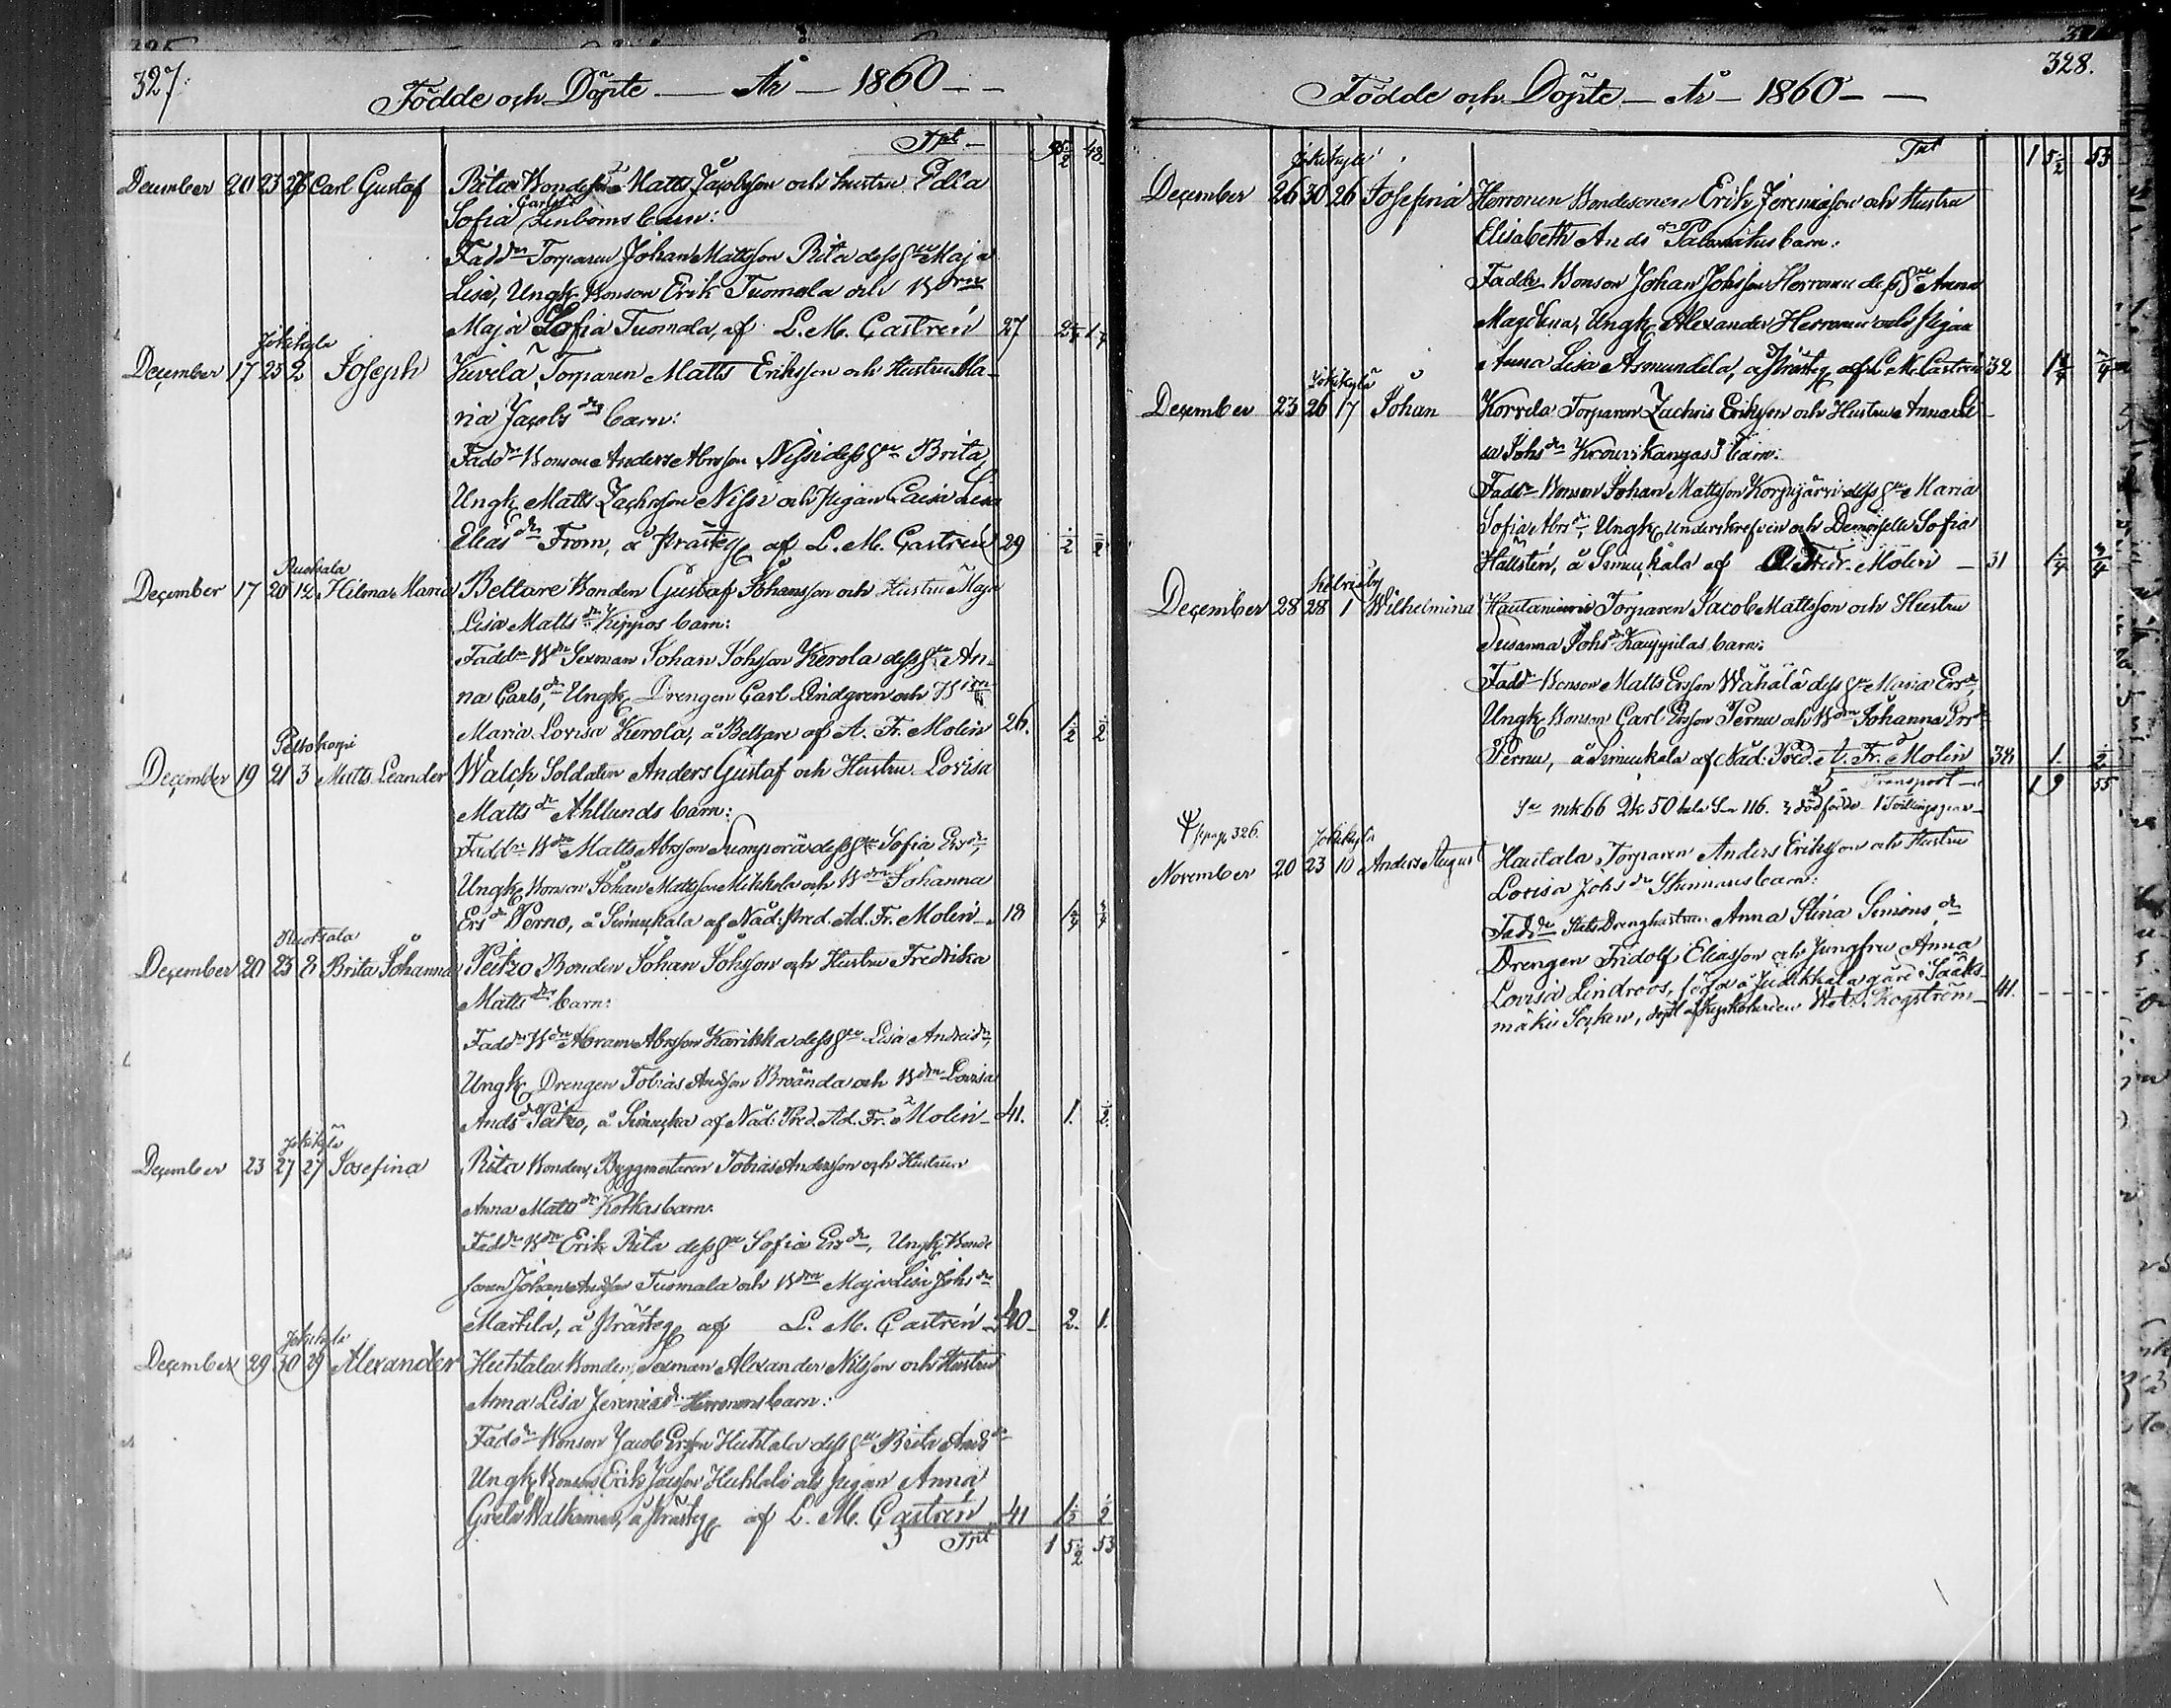 327.
Födde och Döpte — År — 1860 —
Tpt —
December 20 23 26 Carl Gustaf Rita Bondeson Matts Jacobsson och hustru Edla
Sofia Carls dr Lenboms barn:
Fadd. Torparen Johan Mattsson Rita dess hu Maja
Lisa, Ungk. Bonson Erik Tuomola och Bdrn
Maja Sofia Tuomola, af L. M. Castrén 27
Jokikylä
December 17 25 2 Joseph Kuvela Torparen Matts Eriksson och Hustru Ma-
ria Jacobs dr barn:
Fadd. Bonson Anders Abrsson Nissi dess hu Brita,
Ungk. Matts Zachrsson Nissi och pigan Caisa Lisa
Elias dr From, å Prästeg. af L. M. Castrén 29 ½ ½
Ruotsala
December 17 20 12 Hilma Maria Beltare Bonden Gustaf Johansson och Hustru Maja
Lisa Matts dr Kippos barn:
Fadd. Bdn Sexman Johan Johsson Kerola dess hu An-
na Carls dr, Ungk. Drengen Carl Lindgren och Bdrn
Maria Lovisa Kerola, å Beltare af A. Fr. Molin 26. ½ ½
Peltokorpi
December 19 21 3 Matts Leander Walck Soldaten Anders Gustaf och Hustru Lovisa
Matts dr Ahllunds barn:
Fadd. Bdn Matts Abrsson Suomperä dess hu Sofia Ers dr,
Ungk. Bonson Johan Mattsson Mikkola och Bdrn Johanna
Ers dr Perno, å Simuskala af Nåd. Pred. Ad. Fr. Molin 18
Ruotsala
December 20 23 8 Brita Johanna Peitzo Bonden Johan Johsson och Hustru Fredrika
Matts dr barn:
Fadd. Bdn Abram Abrsson Karikka dess hu Lisa Andrs dr,
Ungk. Drengen Tobias Andsson Brända och Bdrn Lovisa
Ands dr Peitzo, å Simuska af Nåd. Pred. Ad. Fr. Molin 41. 1. ½
Jokikylä
December 23 27 27 Josefina Rita Bonden, Byggmästaren Tobias Andersson och Hustrun
Anna Matts dr Kotkas barn.
Fadd. Bdn Erik Rita dess hu Sofia Ers dr, Ungk. Bonde
sonen Johan Andsson Tuomala och Bdrn Maja Lisa Johs dr
Martila, å Prästeg. af L. M. Castrén 40 2. 1.
Jokikylä
December 29 30 29 Alexander Huhtala Bonden, Sexman Alexander Nilsson och Hustru
Anna Lisa Jeremias dr Herronens barn:
Fadd. Bonson Jacob Ersson Huhtala dess hu Brita Ands dr
Ungk. Bonson Erik Jacsson Huhtala och pigan Anna
Greta Walkama, å Prästeg. af L. M. Castrén 41 1½ ½
Tpt 1 5½ 53
328.
Födde och Döpte — År — 1860 —
Tpt 1 5½ 53
Jokikylä
December 26 30 26 Josefina Herronen Bondesonen Erik Jeremiasson och Hustru
Elisabeth Ands dr Palomäkis barn:
Fadd. Bonson Johan Johsson Herronen dess hu Anna
Magdlena, Ungk. Alexander Herronen och pigan
Anna Lisa Asmundela, å Prästeg. af L. M. Castrén 32
Jokikylä
December 23 26 17 Johan Korvela Torparen Zachris Eriksson och Hustru Anna Li-
sa Johs dr Krouvikangas barn:
Fadd. Bonson Johan Mattsson Korpijärvi dess hu Maria
Sofia Abrs dr, Ungk. Underskrefven och Demoiselle Sofia
Hällstén, å Simuskala af A. Fredr. Molin — 31
December 28 28 1 Wilhelmina Hautaniemi Torparen Jacob Mattsson och Hustru
Susanna Johs dr Kauppilas barn:
Fadd. Bonson Matts Ersson Wähälä dess hu Maria Ers dr,
Ungk. Bonson Carl Ersson Pernu och Bdrn Johanna Ers dr
Pernu, å Simuskala af Nåd. Pred. A. Fr. Molin 38. 1. ½
Transport — 1 9 55
Sa mk 66 Qk 50 hela Sa 116. 3 dödfödde 1 Tvillingspar —
pag. 326.
Jokikylä
November 20 23 10 Anders August Hautala Torparen Anders Eriksson och Hustru
Lovisa Johs dr Skinnars barn:
Fadde Stats Drenghustrun Anna Stina Simons dr
Drengen Fridolf Eliasson och Jungfru Anna
Lovisa Lindroos, född å Juckkala gård i Sääks-
mäki Socken, döpt af Kyrkoherden W. Hagström — 41. — — —